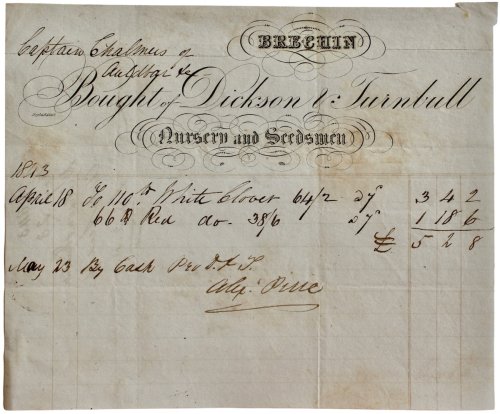 BRECHIN
Captain Chalmers of
Auldbar &c
Bought of Dickson & Turnbull
Nursery and Seedsmen
1843
April 18 To 110lb White Clover 64/2 3 4 2
66 lb Red do. 38/6 1 18 6
£ 5 2 8
May 23 By Cash Per D. & T.
Alexr.